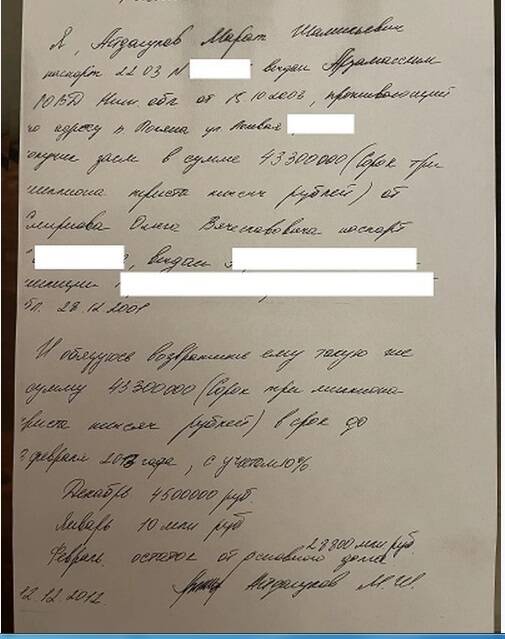 Я, Айдагулов Марат Шамильевич
паспорт 22 03 N выдан Арзамасским
РОВД Ниж. обл от 13.10.2003, проживающий
по адресу п. ул
получил заем в сумме 43300000 (Сорок три
миллиона триста тысяч рублей) от
Смирнова Олега Вячеславовича паспорт
выдан
милиции
28.12.2001
И обязуюсь возвратить ему такую же
сумму 43300000 (Сорок три миллиона
триста тысяч рублей) в срок до
февраля 2013 года, с учетом 10%.
Декабрь 4500000 руб
Январь 10 млн руб
28800 млн руб
Февраль остаток от основного долга
12.12.2012 М.Ш.